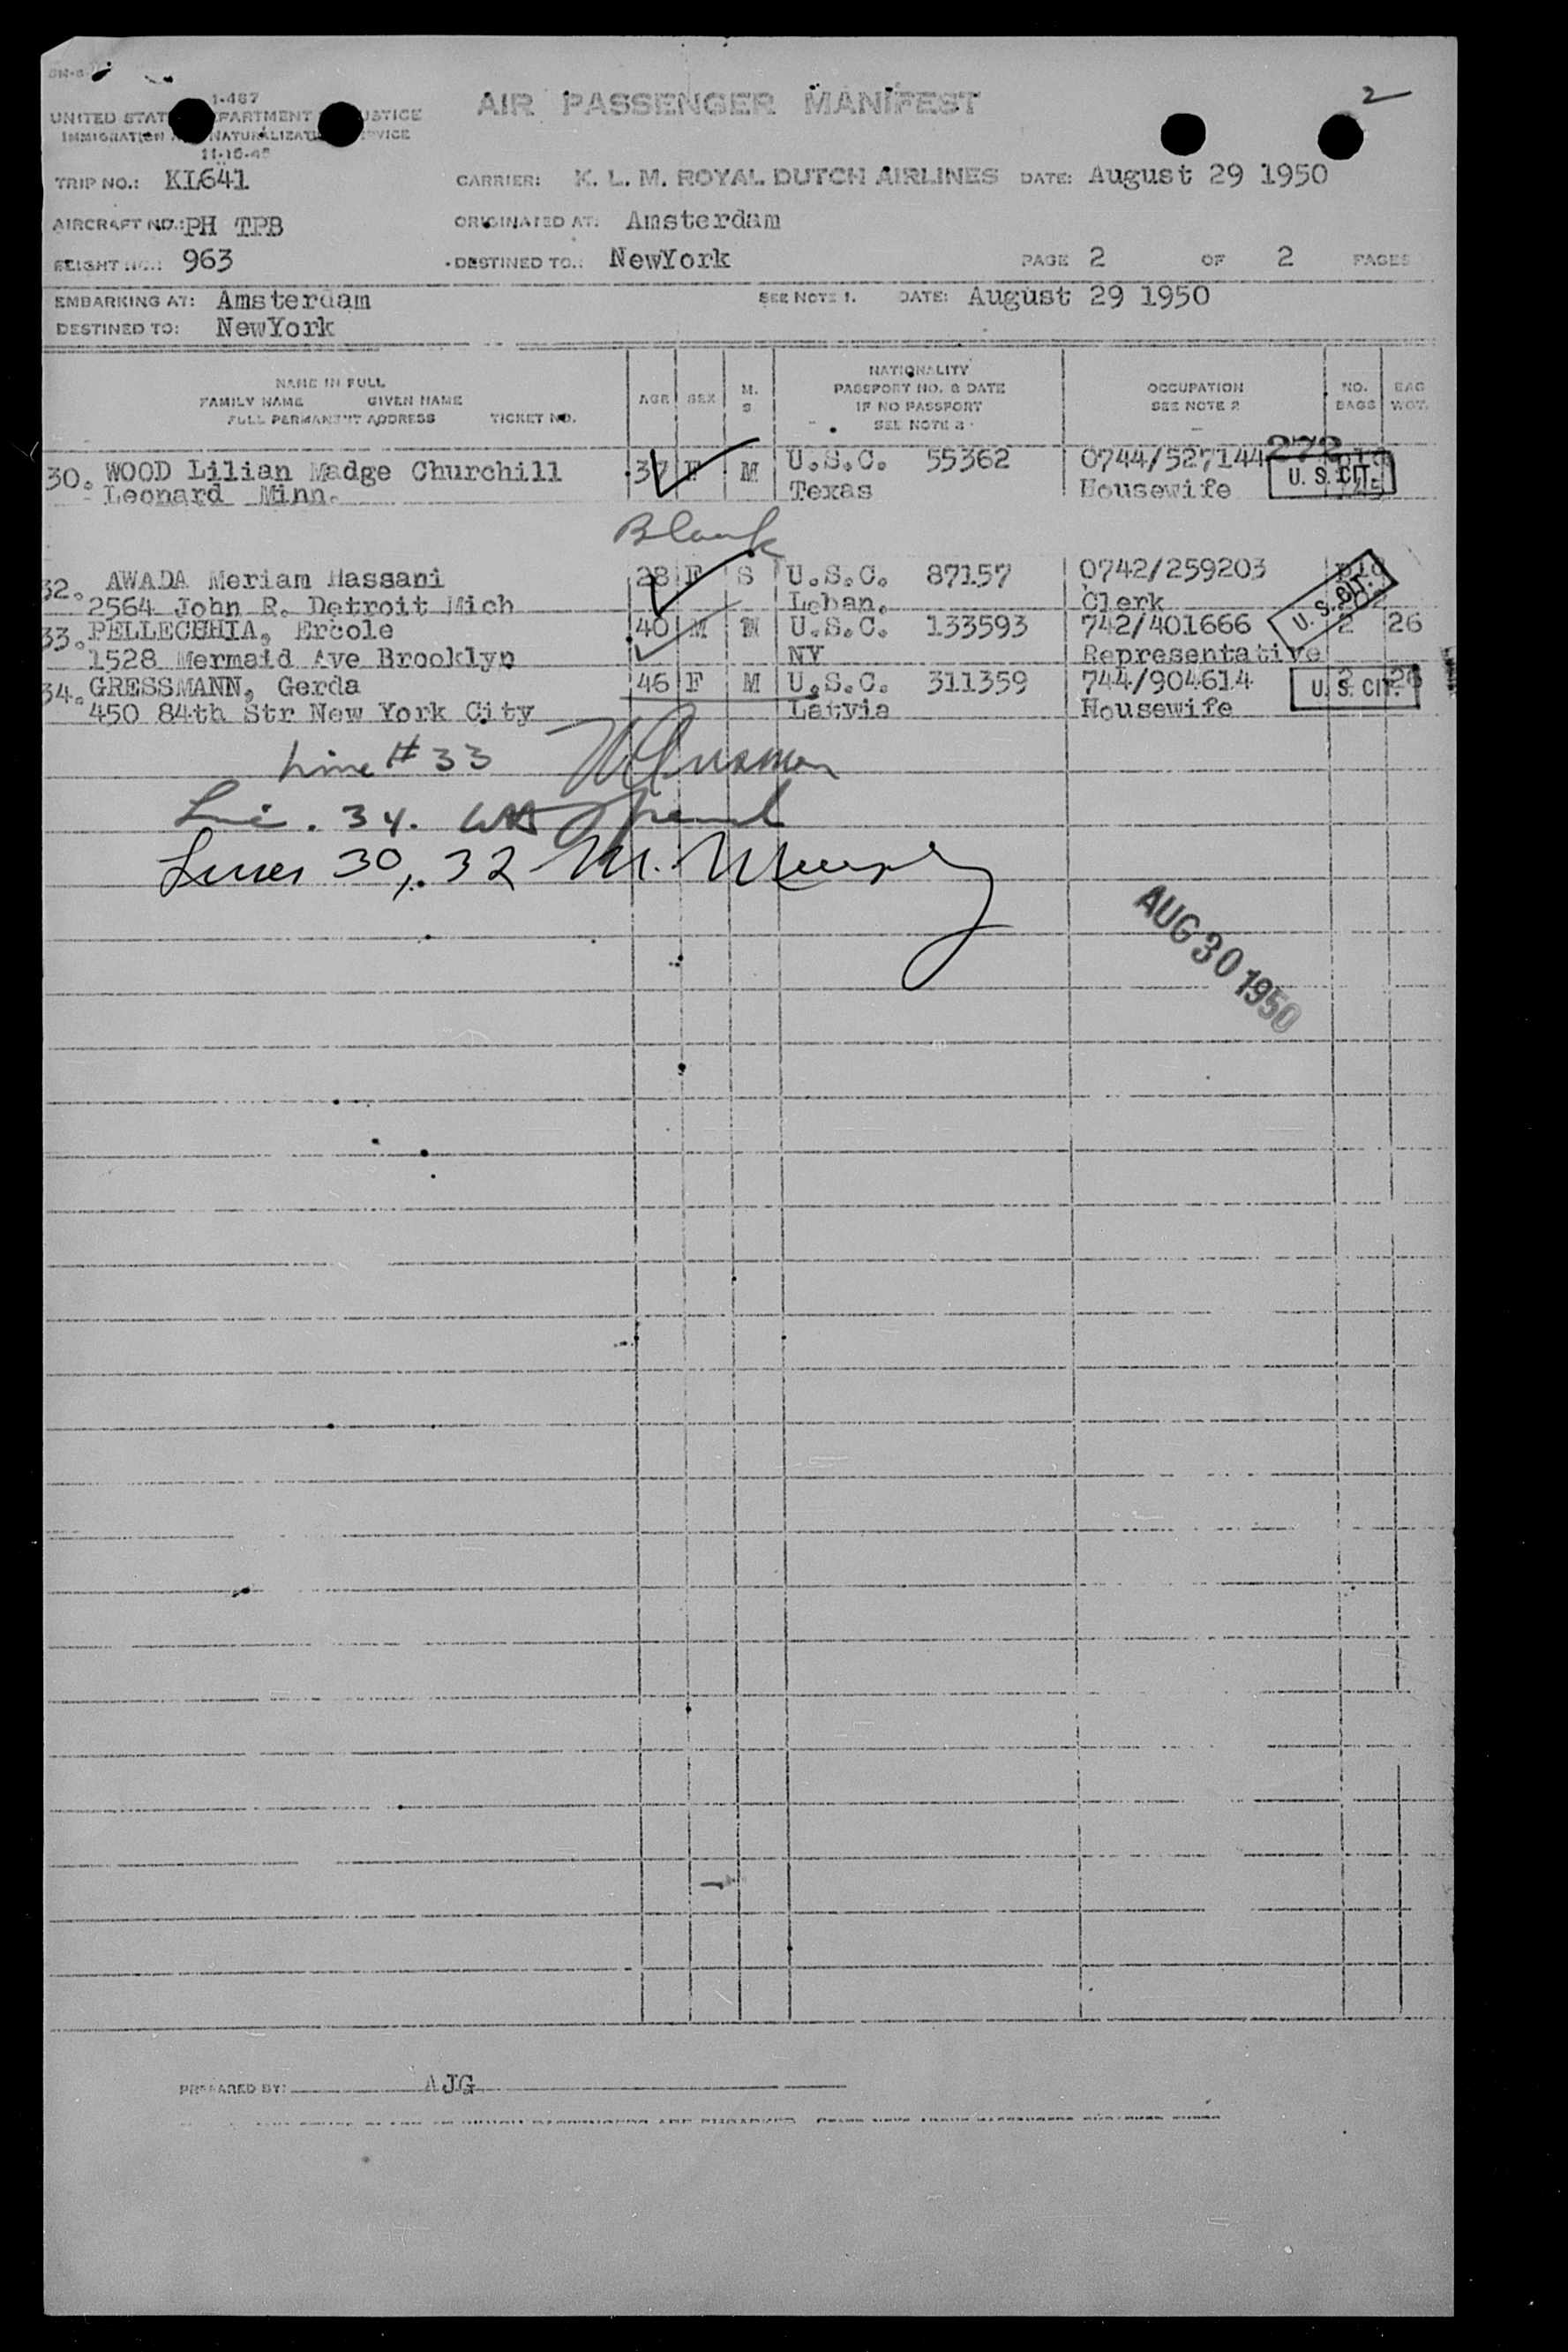 1-467
UNITED STAT PARTMENT USTICE
IMMIGRATION NATURALIZATI RVICE
11-15-45
AIR PASSENGER MANIFEST
2
TRIP NO.: KL641 CARRIER: K. L. M. ROYAL DUTCH AIRLINES DATE: August 29 1950
AIRCRAFT NO.: PH TPB ORIGINATED AT: Amsterdam
FLIGHT NO.: 963 DESTINED TO.: NewYork PAGE 2 OF 2 PAGES
EMBARKING AT: Amsterdam SEE NOTE 1. DATE: August 29 1950
DESTINED TO: NewYork
NAME IN FULL
FAMILY NAME GIVEN NAME
FULL PERMANENT ADDRESS TICKET NO.
AGE SEX M. S.
NATIONALITY
PASSPORT NO. & DATE
IF NO PASSPORT
SEE NOTE 3
OCCUPATION
SEE NOTE 2
NO. BAGS
BAG WGT.
30. WOOD Lilian Madge Churchill 37 F M U.S.C. 55362 0744/527144 272
Leonard Minn. Texas Housewife U. S. CIT.
Blank
32. AWADA Meriam Hassani 28 F S U.S.C. 87157 0742/259203
2564 John R. Detroit Mich Leban. Clerk U. S. CIT.
33. PELLECCHIA, Ercole 40 M M U.S.C. 133593 742/401666 2 26
1528 Mermaid Ave Brooklyn NY Representative
34. GRESSMANN, Gerda 46 F M U.S.C. 311359 744/904614 2 26 U. S. CIT.
450 84th Str New York City Latvia Housewife
Line # 33
Lin. 34.
Lines 30, 32 M. Murphy
AUG 30 1950
PREPARED BY: AJG